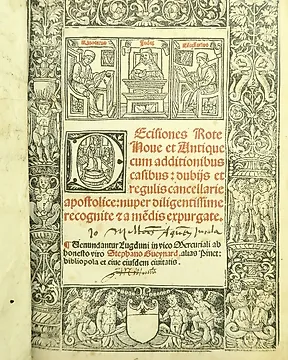 Iudex
DEcisiones Rote
Noue et Antique
cum additionibus
casibus: dubijs et
regulis cancellarie
apostolice: nuper diligentissime
recognite & a mēdis expurgate.
¶ Venundantur Lugduni in vico Mercuriali ab
honesto viro Stephano Gueynard. alias Pinet:
bibliopola et ciue eiusdem ciuitatis.